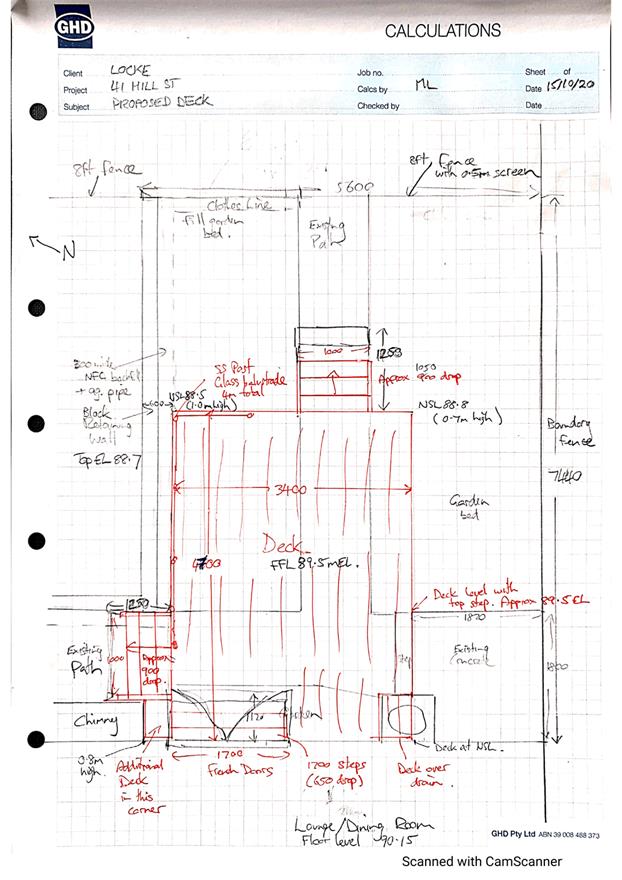 GHD
CALCULATIONS
Client LOCKE
Job no.
Sheet of
Project 41 HILL ST
Calcs by ML
Date 15/10/20
Subject PROPOSED DECK
Checked by
Date
8ft Fence
5600
8ft Fence
with 0.5m screen
Clothes Line
Fill garden
bed.
Existing
Path
N
300 wide
NFC backfill
+ ag. pipe
600
Block
Retaining
Wall
Top EL 88.7
SS Post
Glass balustrade
4m total
NSL 88.5
(1.0m high)
1000
1250
1050
Approx 900 drop
NSL 88.8
(0.7m high)
Boundary
Fence
7440
3400
Garden
bed
Deck
FFL 89.5 mEL.
4700
Deck level with
top step. Approx 89.5 EL
1250
1820
Existing
Path
1000
Approx
900
drop.
Step
Existing
Concrete
1800
Chimny
1120
0.8m
high.
Additional
Deck
in this
corner
1700
French Doors
1700 steps
(650 drop)
Deck over
drain.
Deck at NSL.
Lounge/Dining Room
Floor level 90.15
GHD Pty Ltd ABN 39 008 488 373
Scanned with CamScanner